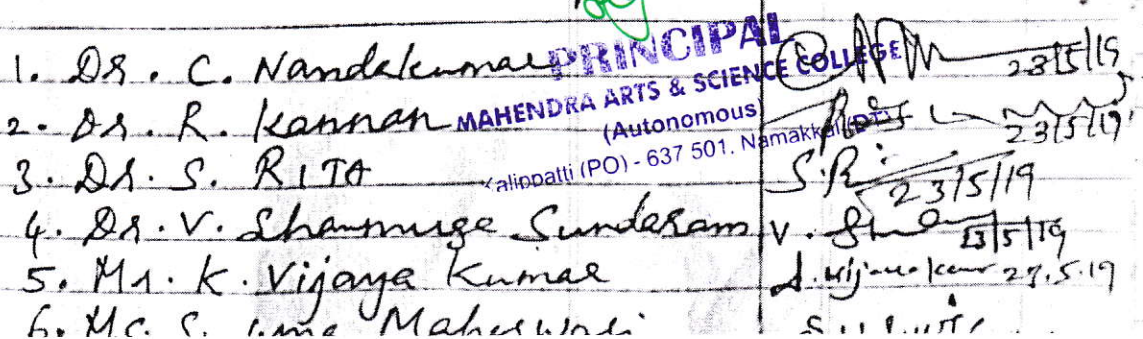 PRINCIPAL
MAHENDRA ARTS & SCIENCE COLLEGE
(Autonomous)
Kalippatti (PO) - 637 501. Namakkal (DT)
1. Dr. C. Nandakumar 23/5/19
2. Dr. R. Kannan 23/5/19
3. Dr. S. RITA S.R 23/5/19
4. Dr. V. Shanmuga Sundaram V. 23/5/19
5. Mr. K. Vijaya Kumar
6. S. Uma Maheswari